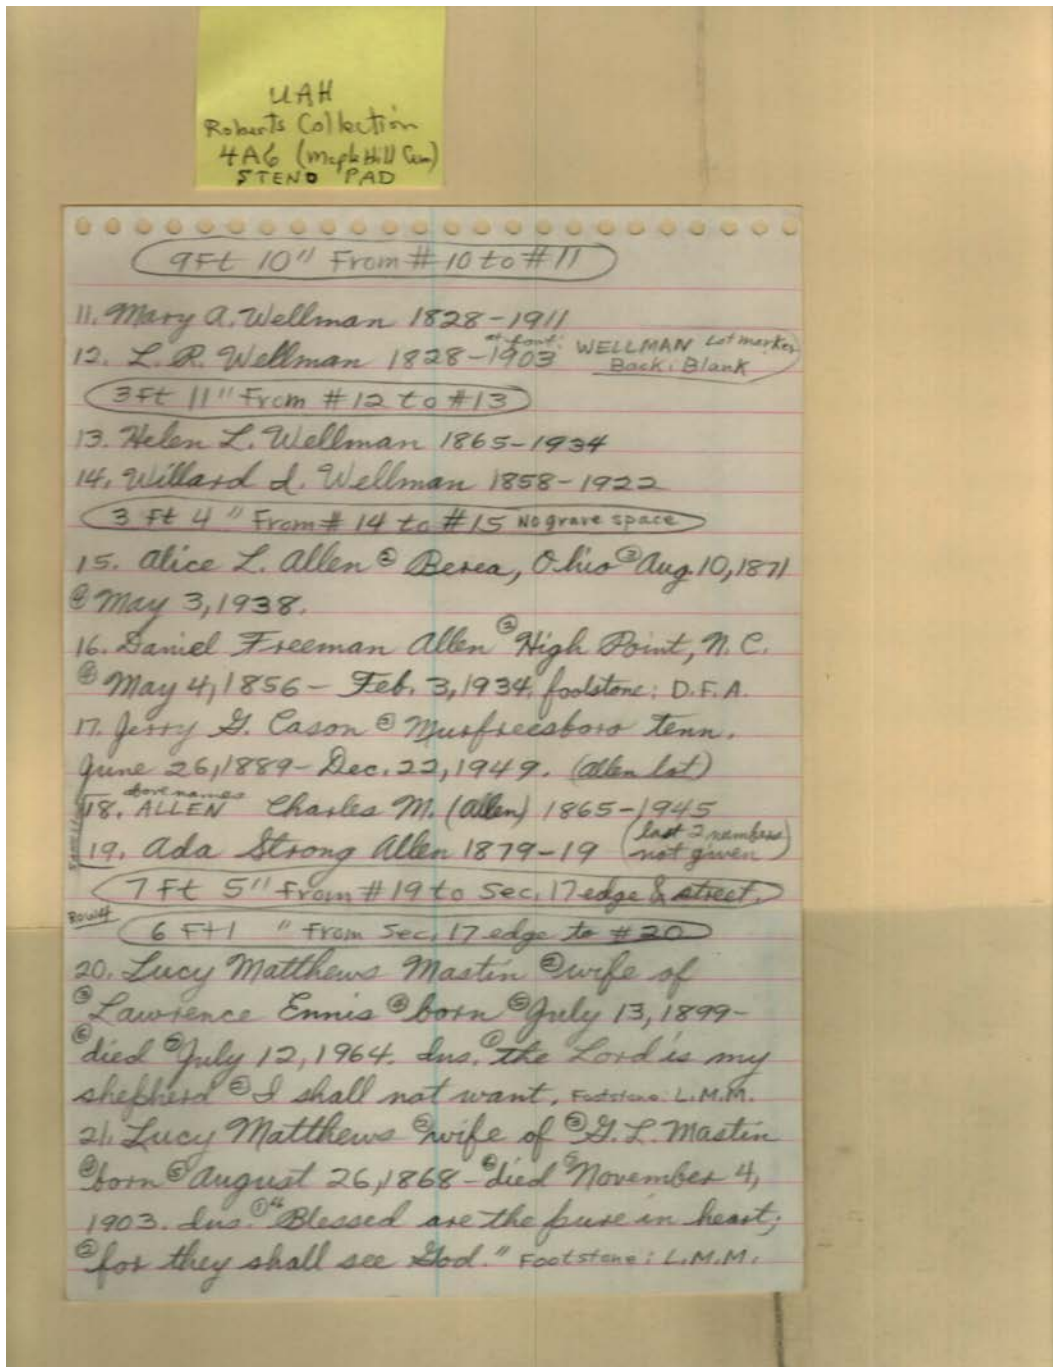 UAH
Roberts Collection
4A6 (Maple Hill Cem)
STENO PAD
9Ft 10" From #10 to #11
11. Mary A. Wellman 1828-1911
at foot: WELLMAN Lot marker
12. L. R. Wellman 1828-1903 Back: Blank
3Ft 11" From #12 to #13
13. Helen L. Wellman 1865-1934
14. Willard I. Wellman 1858-1922
3 Ft 4" From #14 to #15 No grave space
15. Alice L. Allen ② Berea, Ohio ③ Aug. 10, 1871
④ May 3, 1938.
16. Daniel Freeman Allen ③ High Point, N. C.
④ May 4, 1856 - Feb. 3, 1934. footstone: D.F.A.
17. Jerry G. Cason ② Murfreesboro Tenn.
June 26, 1889 - Dec. 22, 1949. (Allen lot)
above names
18. ALLEN Charles M. (Allen) 1865-1945
19. Ada Strong Allen 1879-19 (last 2 numbers
not given)
7 Ft 5" From #19 to Sec. 17 edge & street.
Row 4
6 Ft 1 " From Sec. 17 edge to #20
20. Lucy Matthews Mastin ② wife of
③ Lawrence Ennis ④ born ⑤ July 13, 1899-
⑥ died ⑦ July 12, 1964. Ins. ① the Lord is my
shepherd ② I shall not want. Footstone: L.M.M.
21. Lucy Matthews ② wife of ③ G. L. Mastin
④ born ⑤ August 26, 1868 - ⑥ died ⑦ November 4,
1903. Ins. ① "Blessed are the pure in heart;
② for they shall see God." Footstone: L.M.M.